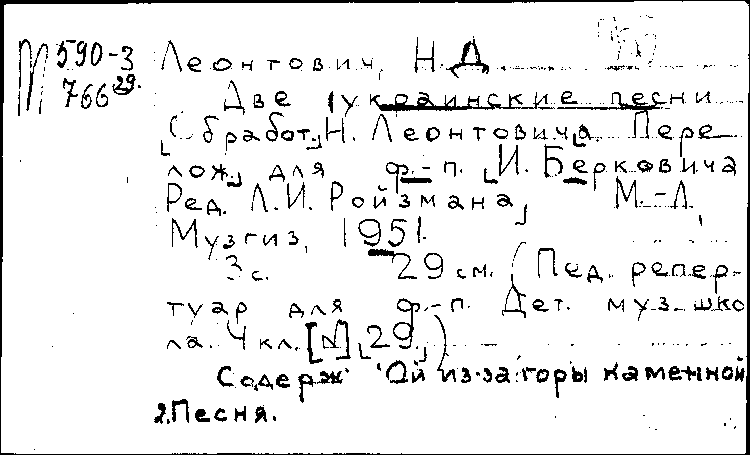 М 590-3
766 29.
Леонтович, Н. Д.
Две украинские песни
[Обработ.] Н. Леонтовича. Пере
лож. для ф.-п. [И. Берковича
Ред. Л. И. Ройзмана] М.-Л.,
Музгиз, 1951.
3 с. 29 см. (Пед. репер-
туар для ф.-п. Дет. муз. шко
ла. 4 кл. [N] [29.])
Содерж: Ой из-за горы каменной
2. Песня.